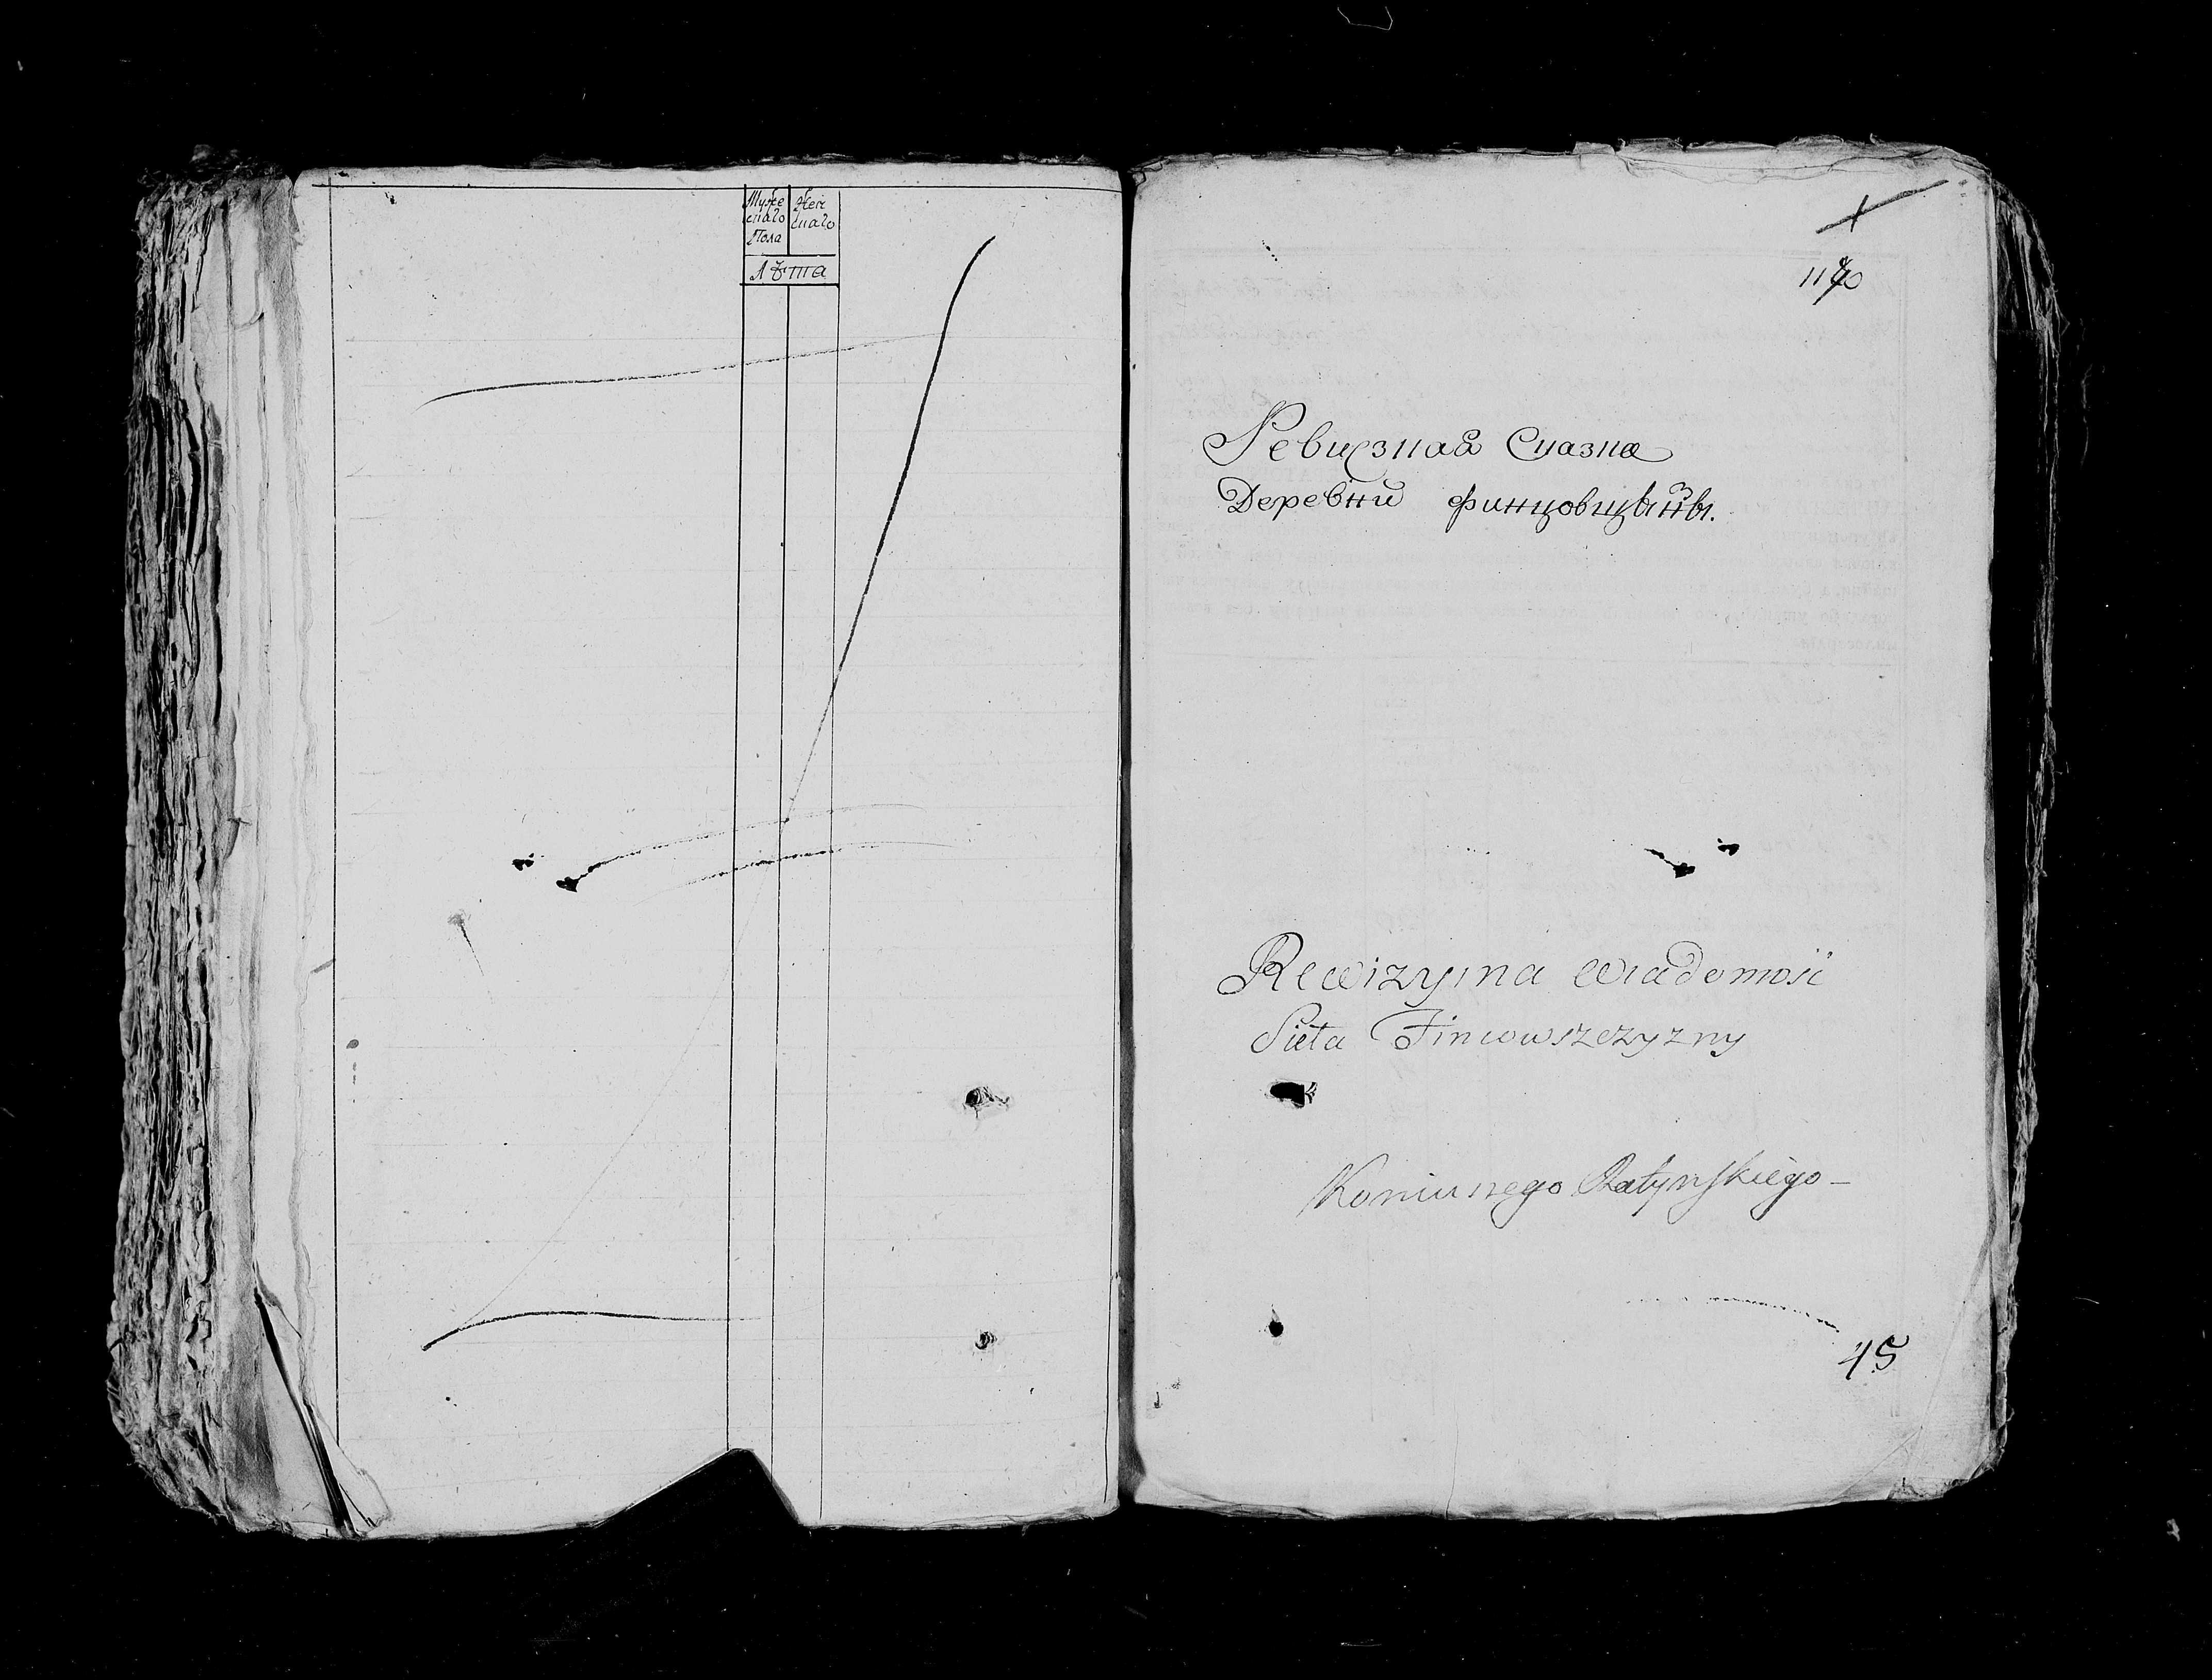 Мужескаго Пола
Женскаго
Лѣта
Ревизкная Сказка
Деревни Финцовщизны.
Rewizyina wiadomość
Sieła Fincowszczyzny
Koniuszego Ratynskiego
45